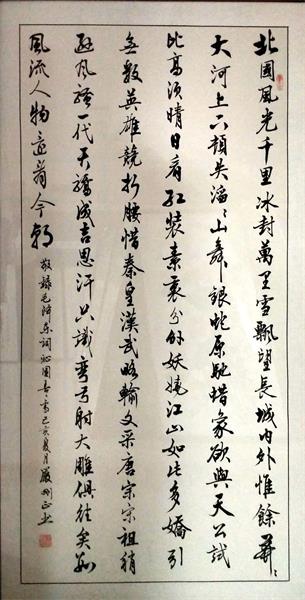 北國風光千里冰封萬里雪飄望長城内外惟餘莽〻
大河上下頓失滔〻山舞銀蛇原馳蜡象欲與天公試
比高須晴日看紅裝素裹分外妖嬈江山如此多嬌引
無數英雄競折腰惜秦皇漢武略輸文采唐宗宋祖稍
遜風騷一代天驕成吉思汗只識彎弓射大雕俱往矣數
風流人物還看今朝
敬錄毛澤東詞沁園春雪己亥夏月嚴